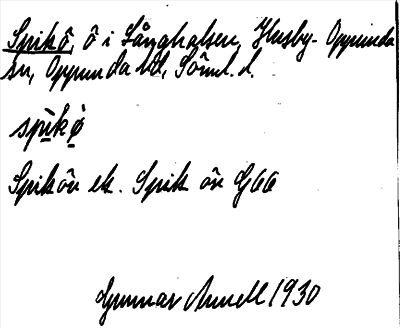 Spikö, ö i Långhalsen, Husby-Oppunda
sn, Oppunda hd, Söml. l.
spikö
Spikön ek. Spik ön G66
Gunnar Arnell 1930